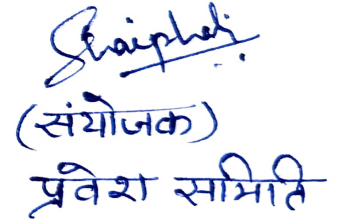 Shaiphali
(संयोजक)
प्रवेश समिति